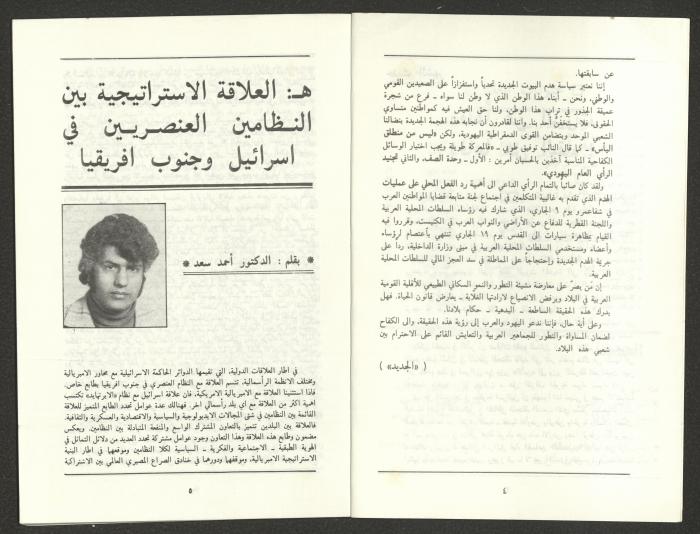 عن سابقتها.
إننا نعتبر سياسة هدم البيوت الجديدة تحدياً واستفزازاً على الصعيدين القومي
والوطني، ونحن ـ أبناء هذا الوطن الذي لا وطن لنا سواه ـ فرع من شجرة
عميقة الجذور في تراب هذا الوطن، ولنا حق العيش فيه كمواطنين متساوي
الحقوق. فلا يستخفنّ أحد بنا. واننا لقادرون أن نجابه هذه الهجمة الجديدة بنضالنا
الشعبي الموحد وبتضامن القوى الدمقراطية اليهودية، ولكن «ليس من منطلق
اليأس» ـ كما قال النائب توفيق طوبي ـ «فالمعركة طويلة ويجب اختيار الوسائل
الكفاحية المناسبة آخذين بالحسبان أمرين : الأول ـ وحدة الصف، والثاني تجنيد
الرأي العام اليهودي».
ولقد كان صائباً بالتمام الرأي الداعي الى أهمية رد الفعل المحلي على عمليات
الهدم الذي تقدم به غالبية المتكلمين في اجتماع لجنة متابعة قضايا المواطنين العرب
في شفاعمرو يوم ٩ الجاري، الذي شارك فيه رؤساء السلطات المحلية العربية
واللجنة القطرية للدفاع عن الأراضي والنواب العرب في الكنيست، وقرروا فيه
القيام بمظاهرة سيارات الى القدس يوم ١٩ الجاري تنتهي بأعتصام لرؤساء
وأعضاء ومستخدمي السلطات المحلية العربية في مبنى وزارة الداخلية، ردا على
جريمة الهدم الجديدة واحتجاجاً على المماطلة في سد العجز المالي للسلطات المحلية
العربية.
إن من يصرّ على معارضة مشيئة التطور والنمو السكاني الطبيعي للأقلية القومية
العربية في البلاد ويرفض الانصياع لارادتها الغلابة ـ يعارض قانون الحياة. فهل
يدرك هذه الحقيقة الساطعة ـ البديهية ـ حكام بلادنا.
وعلى أية حال، فإننا ندعو اليهود والعرب إلى رؤية هذه الحقيقة، والى الكفاح
لضمان المساواة والتطور للجماهير العربية والتعايش القائم على الاحترام بين
شعبي هذه البلاد.
( «الجديد» )
٤
هـ: العلاقة الاستراتيجية بين
النظامين العنصريين في
اسرائيل وجنوب افريقيا
* بقلم : الدكتور أحمد سعد *
في اطار العلاقات الدولية، التي تقيمها الدوائر الحاكمة الاسرائيلية مع محاور الامبريالية
ومختلف الانظمة الرأسمالية، تتسم العلاقة مع النظام العنصري في جنوب افريقيا بطابع خاص.
فاذا استثنينا العلاقة مع الامبريالية الامريكية، فان علاقة اسرائيل مع نظام «الابرتهايد» تكتسب
اهمية اكثر من العلاقة مع اي بلد رأسمالي اخر. فهنالك عدة عوامل تحدد الطابع المتميز للعلاقة
القائمة بين النظامين في شتى المجالات الايديولوجية والسياسية والاقتصادية والعسكرية والثقافية.
فالعلاقة بين البلدين تتميز بالتعاون المشترك الواسع والمنفعة المتبادلة بين النظامين. ويعكس
مضمون وطابع هذه العلاقة وهذا التعاون وجود عوامل مشتركة تحدد العديد من دلائل التماثل في
الهوية الطبقية ـ الاجتماعية والفكرية ـ السياسية لكلا النظامين وموقعهما في اطار البنية
الاستراتيجية الامبريالية، وموقفهما ودورهما في خنادق الصراع المصيري العالمي بين الاشتراكية
٥